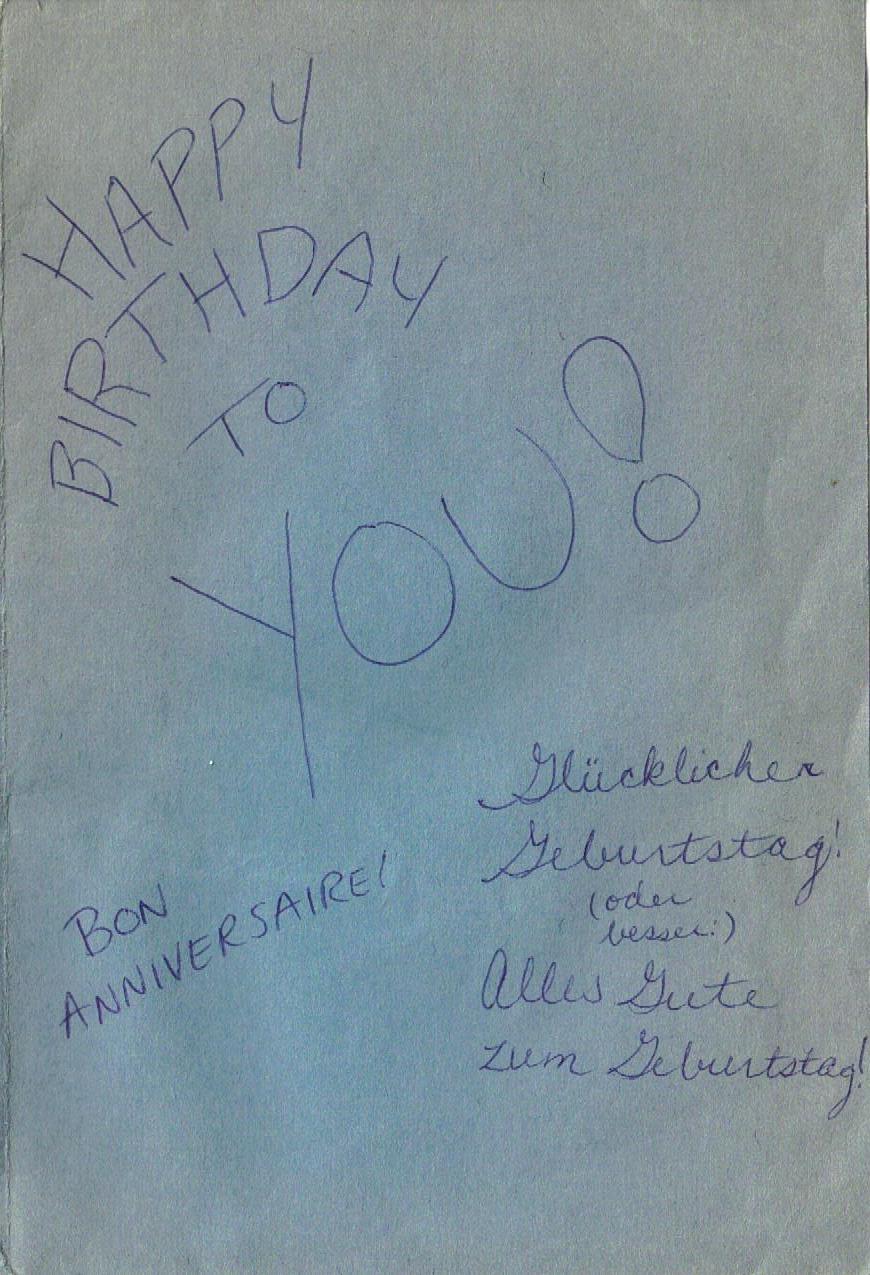 HAPPY
BIRTHDAY
TO
YOU!
BON
ANNIVERSAIRE!
Glücklicher
Geburtstag!
(oder
besser:)
Alles Gute
zum Geburtstag!